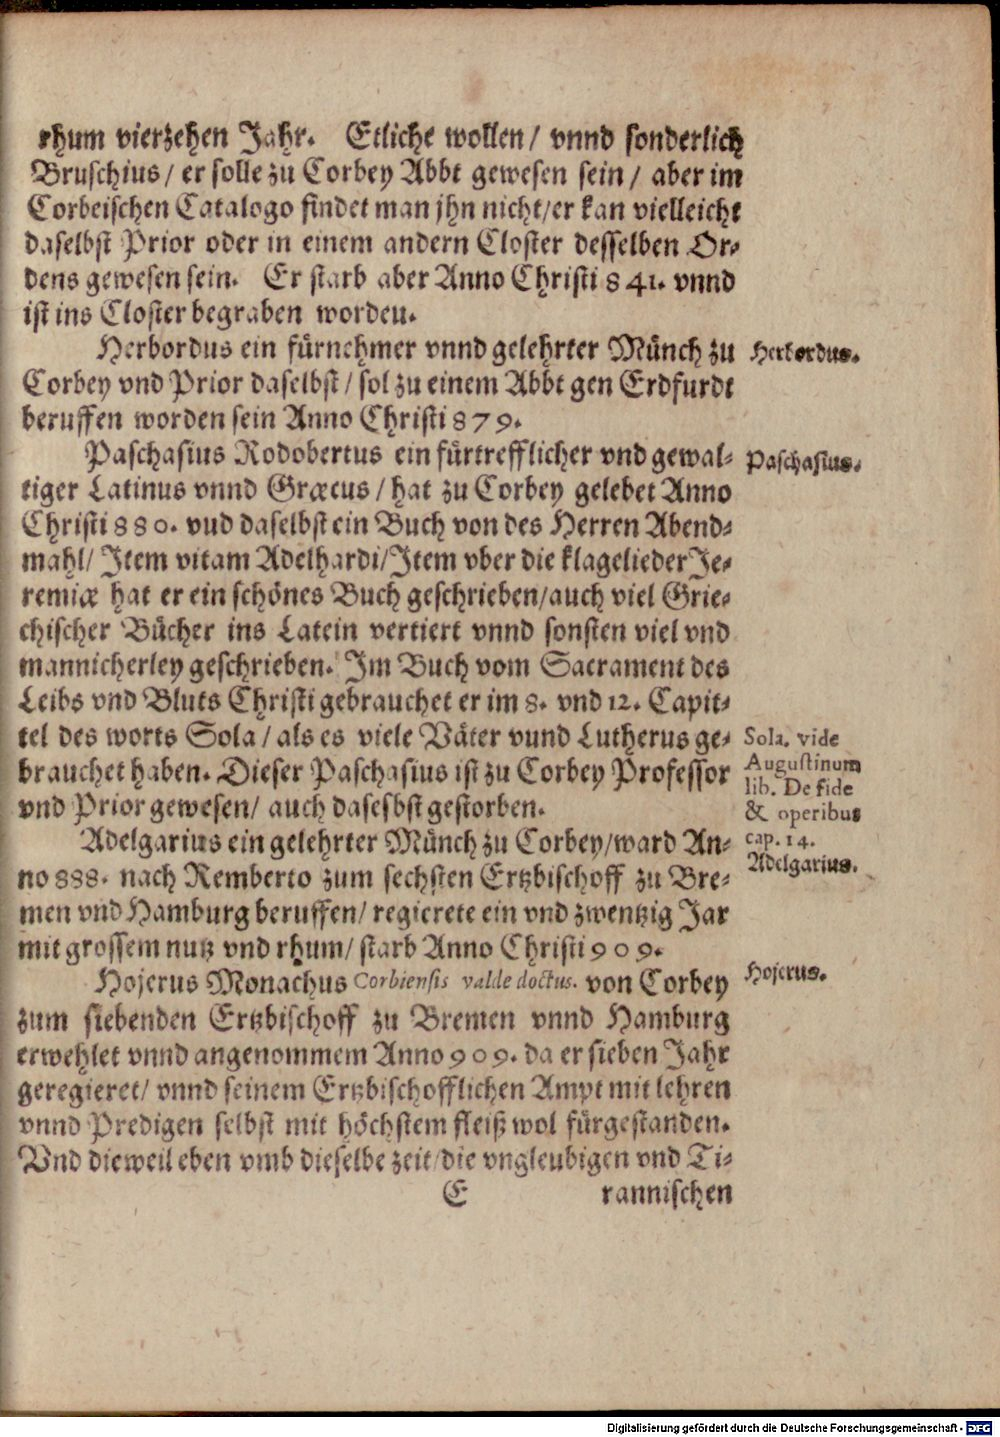 rhum vierzehen Jahr. Etliche wollen/ vnnd sonderlich
Bruschius/ er solle zu Corbey Abbt gewesen sein/ aber im
Corbeischen Catalogo findet man jhn nicht/er kan vielleicht
daselbst Prior oder in einem andern Closter desselben Or-
dens gewesen sein. Er starb aber Anno Christi 841. vnnd
ist ins Closter begraben worden.
Herbordus ein fürnehmer vnnd gelehrter Münch zu
Herbordus.
Corbey vnd Prior daselbst/ sol zu einem Abbt gen Erdfurdt
beruffen worden sein Anno Christi 879.
Paschasius Rodobertus ein fürtrefflicher vnd gewal-
Paschasius.
tiger Latinus vnnd Græcus/ hat zu Corbey gelebet Anno
Christi 880. vnd daselbst ein Buch von des Herren Abend-
mahl/ Item vitam Adelhardi/Item vber die klagelieder Je-
remiæ hat er ein schönes Buch geschrieben/auch viel Grie-
chischer Bücher ins Latein vertiert vnnd sonsten viel vnd
mannicherley geschrieben. Im Buch vom Sacrament des
Leibs vnd Bluts Christi gebrauchet er im 8. vnd 12. Capit-
tel des worts Sola/ als es viele Väter vnnd Lutherus ge-
brauchet haben. Dieser Paschasius ist zu Corbey Professor
vnd Prior gewesen/ auch dasesbst gestorben.
Sola. vide
Augustinum
lib. De fide
& operibus
cap. 14.
Adelgarius ein gelehrter Münch zu Corbey/ward An-
Adelgarius.
no 888. nach Remberto zum sechsten Ertzbischoff zu Bre-
men vnd Hamburg beruffen/ regierete ein vnd zwentzig Jar
mit grossem nutz vnd rhum/ starb Anno Christi 909.
Hojerus Monachus Corbiensis valde doctus. von Corbey
Hojerus.
zum siebenden Ertzbischoff zu Bremen vnnd Hamburg
erwehlet vnnd angenommem Anno 909. da er sieben Jahr
geregieret/ vnnd seinem Ertzbischofflichen Ampt mit lehren
vnnd Predigen selbst mit höchstem fleiß wol fürgestanden.
Vnd dieweil eben vmb dieselbe zeit/die vngleubigen vnd Ti-
E rannischen
Digitalisierung gefördert durch die Deutsche Forschungsgemeinschaft - DFG